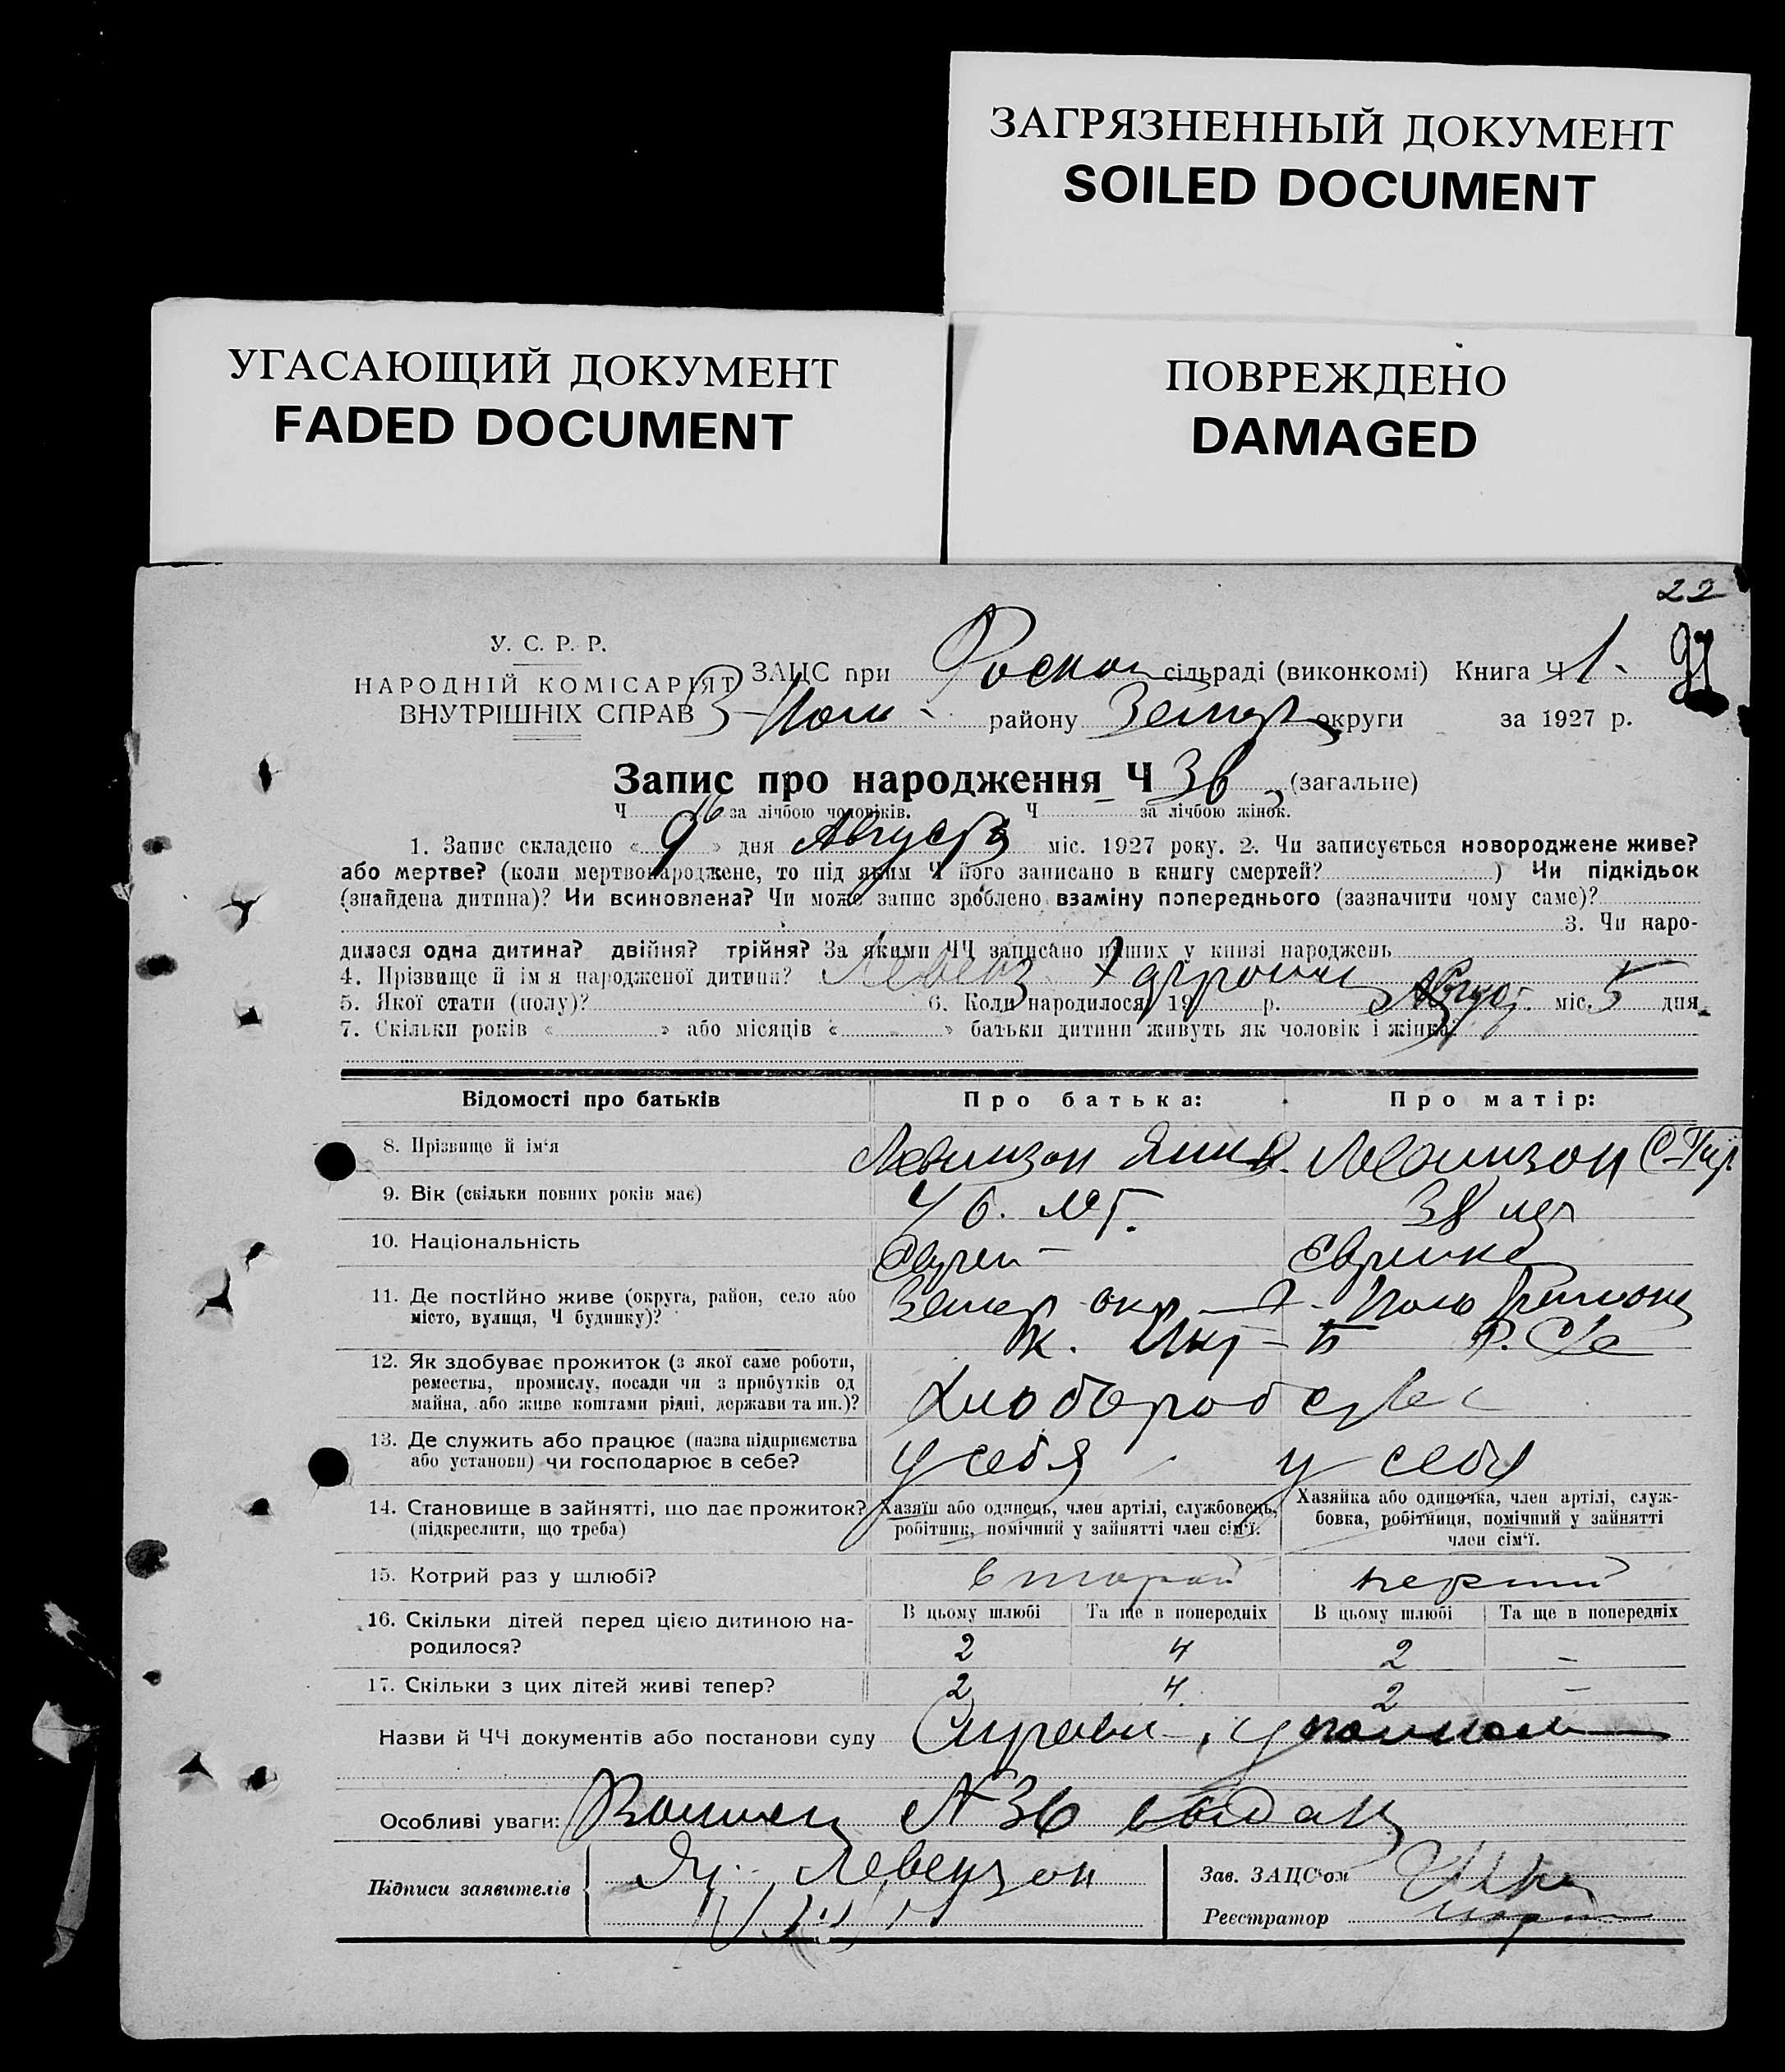 ЗАГРЯЗНЕННЫЙ ДОКУМЕНТ
SOILED DOCUMENT
УГАСАЮЩИЙ ДОКУМЕНТ
FADED DOCUMENT
ПОВРЕЖДЕНО
DAMAGED
22
У. С. Р. Р.
НАРОДНІЙ КОМІСАРІЯТ
ВНУТРІШНІХ СПРАВ
ЗАЦС при сільраді (виконкомі) Книга Ч 1
району округи за 1927 р.
Запис про народження Ч 36 (загальне)
Ч 16 за лічбою чоловіків. Ч за лічбою жінок.
1. Запис складено « 9 » дня Августа міс. 1927 року. 2. Чи записується новороджене живе?
або мертве? (коли мертвонароджене, то під яким Ч його записано в книгу смертей? ) Чи підкідьок
(знайдена дитина)? Чи всиновлена? Чи може запис зроблено взаміну попереднього (зазначити чому саме)?
3. Чи наро-
дилася одна дитина? двійня? трійня? За якими ЧЧ записано инших у книзі народжень
4. Прізвище й ім'я народженої дитини?
5. Якої стати (полу)? 6. Коли народилося 19 р. Август міс. 5 дня
7. Скільки років « » або місяців « » батьки дитини живуть як чоловік і жінка?
Відомості про батьків Про батька: Про матір:
8. Прізвище й ім'я Левинзон Левинзон
9. Вік (скільки повних років має) 46. лет. 38 лет
10. Національність Еврей Еврейка
11. Де постійно живе (округа, район, село або
місто, вулиця, Ч будинку)?
12. Як здобуває прожиток (з якої саме роботи,
ремества, промислу, посади чи з прибутків од
майна, або живе коштами рідні, держави та ин.)?
13. Де служить або працює (назва підприємства
або установи) чи господарює в себе? у себя у себя
14. Становище в зайнятті, що дає прожиток?
(підкреслити, що треба)
Хазяїн або одинець, член артілі, службовець,
робітник, помічний у зайнятті член сім'ї.
Хазяйка або одиночка, член артілі, служ-
бовка, робітниця, помічний у зайнятті
член сім'ї.
15. Котрий раз у шлюбі? второй первий
16. Скільки дітей перед цією дитиною на-
родилося?
В цьому шлюбі Та ще в попередніх В цьому шлюбі Та ще в попередніх
2 4 2 –
17. Скільки з цих дітей живі тепер? 2 4 2 –
Назви й ЧЧ документів або постанови суду
Особливі уваги: N 36 выдан
Підписи заявителів Левензон
Зав. ЗАЦС'ом
Реєстратор